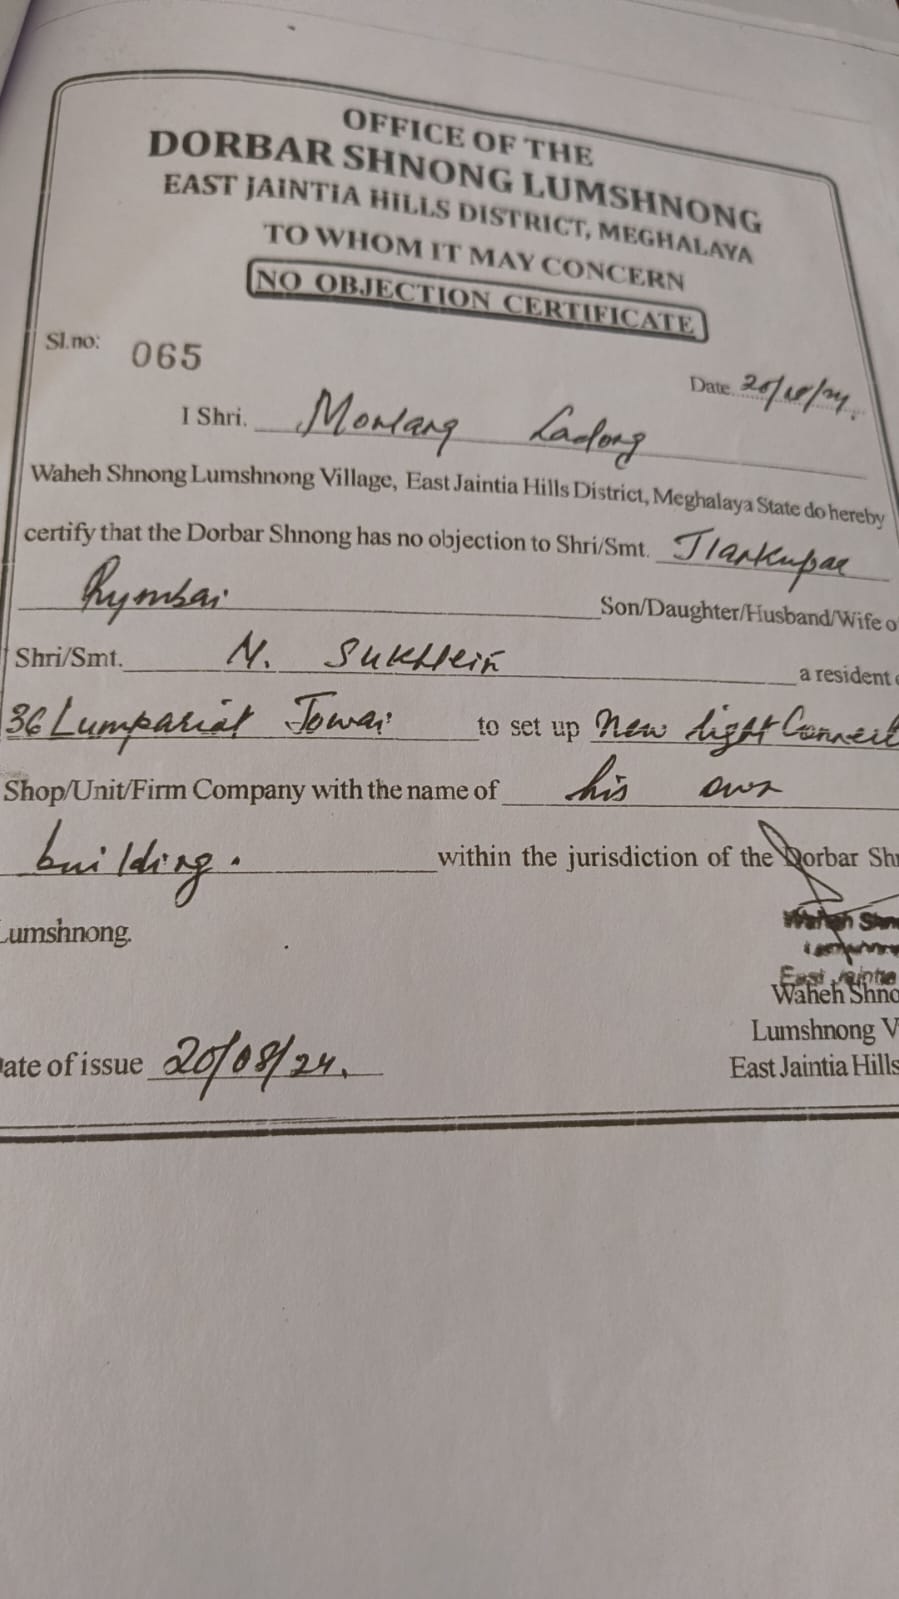 OFFICE OF THE
DORBAR SHNONG LUMSHNONG
EAST JAINTIA HILLS DISTRICT, MEGHALAYA
TO WHOM IT MAY CONCERN
NO OBJECTION CERTIFICATE
Sl.no: 065
Date 20/08/24.
I Shri. Monlang Ladong
Waheh Shnong Lumshnong Village, East Jaintia Hills District, Meghalaya State do hereby
certify that the Dorbar Shnong has no objection to Shri/Smt.
Rymbai Son/Daughter/Husband/Wife o
Shri/Smt. N. Sukhlein a resident
36 Lumpariat Jowai to set up New light Connect
Shop/Unit/Firm Company with the name of his own
building. within the jurisdiction of the Dorbar Sh
Lumshnong.
Waheh Shn
East Jaintia
Waheh Shno
Lumshnong V
ate of issue 20/08/24.
East Jaintia Hills